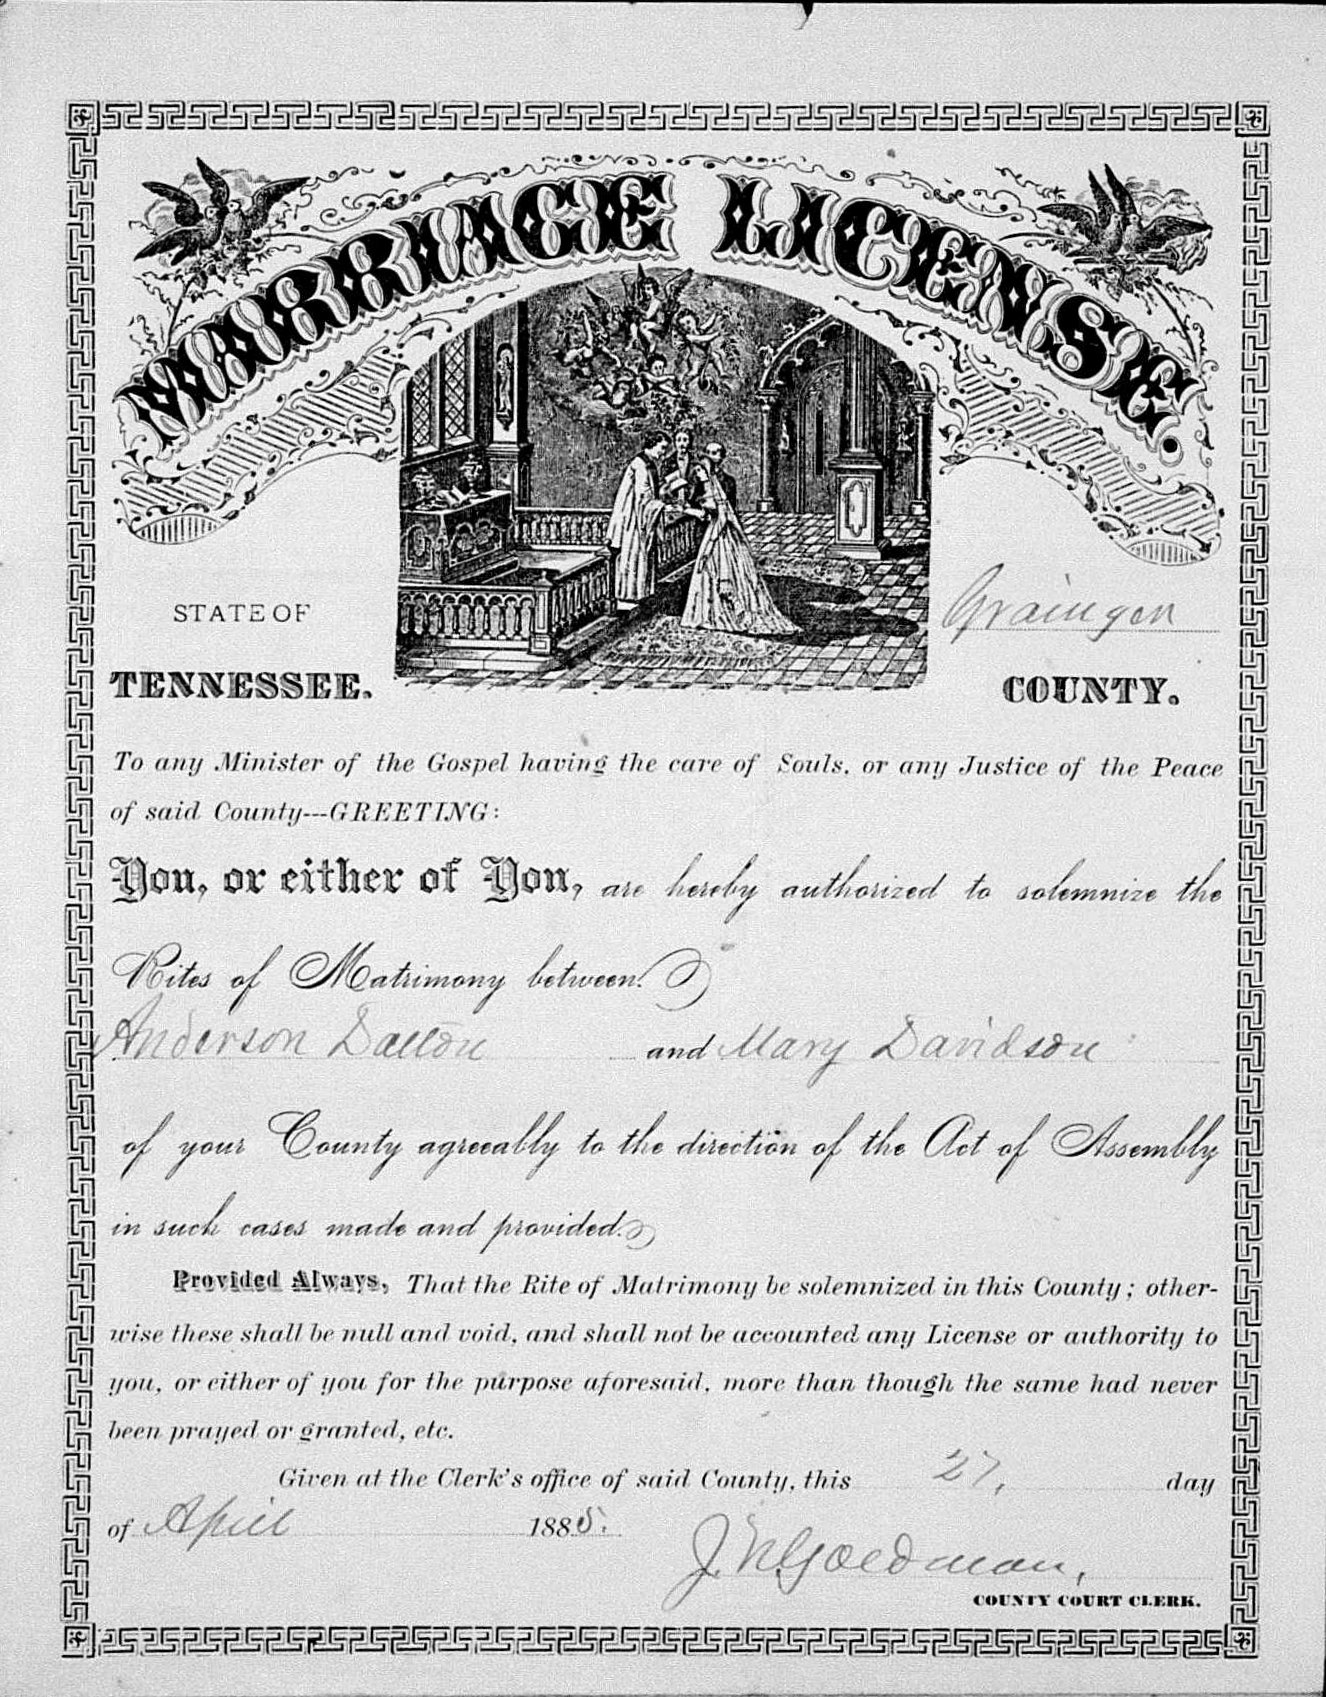 MARRIAGE LICENSE.
STATE OF
TENNESSEE.
Grainger
COUNTY.
To any Minister of the Gospel having the care of Souls, or any Justice of the Peace
of said County---GREETING:
You, or either of You, are hereby authorized to solemnize the
Rites of Matrimony between
Anderson Dalton and Mary Davidson
of your County agreeably to the direction of the Act of Assembly
in such cases made and provided.
Provided Always, That the Rite of Matrimony be solemnized in this County; other-
wise these shall be null and void, and shall not be accounted any License or authority to
you, or either of you for the purpose aforesaid, more than though the same had never
been prayed or granted, etc.
Given at the Clerk's office of said County, this 27, day
of April 1885.
J. N. Goldman,
COUNTY COURT CLERK.